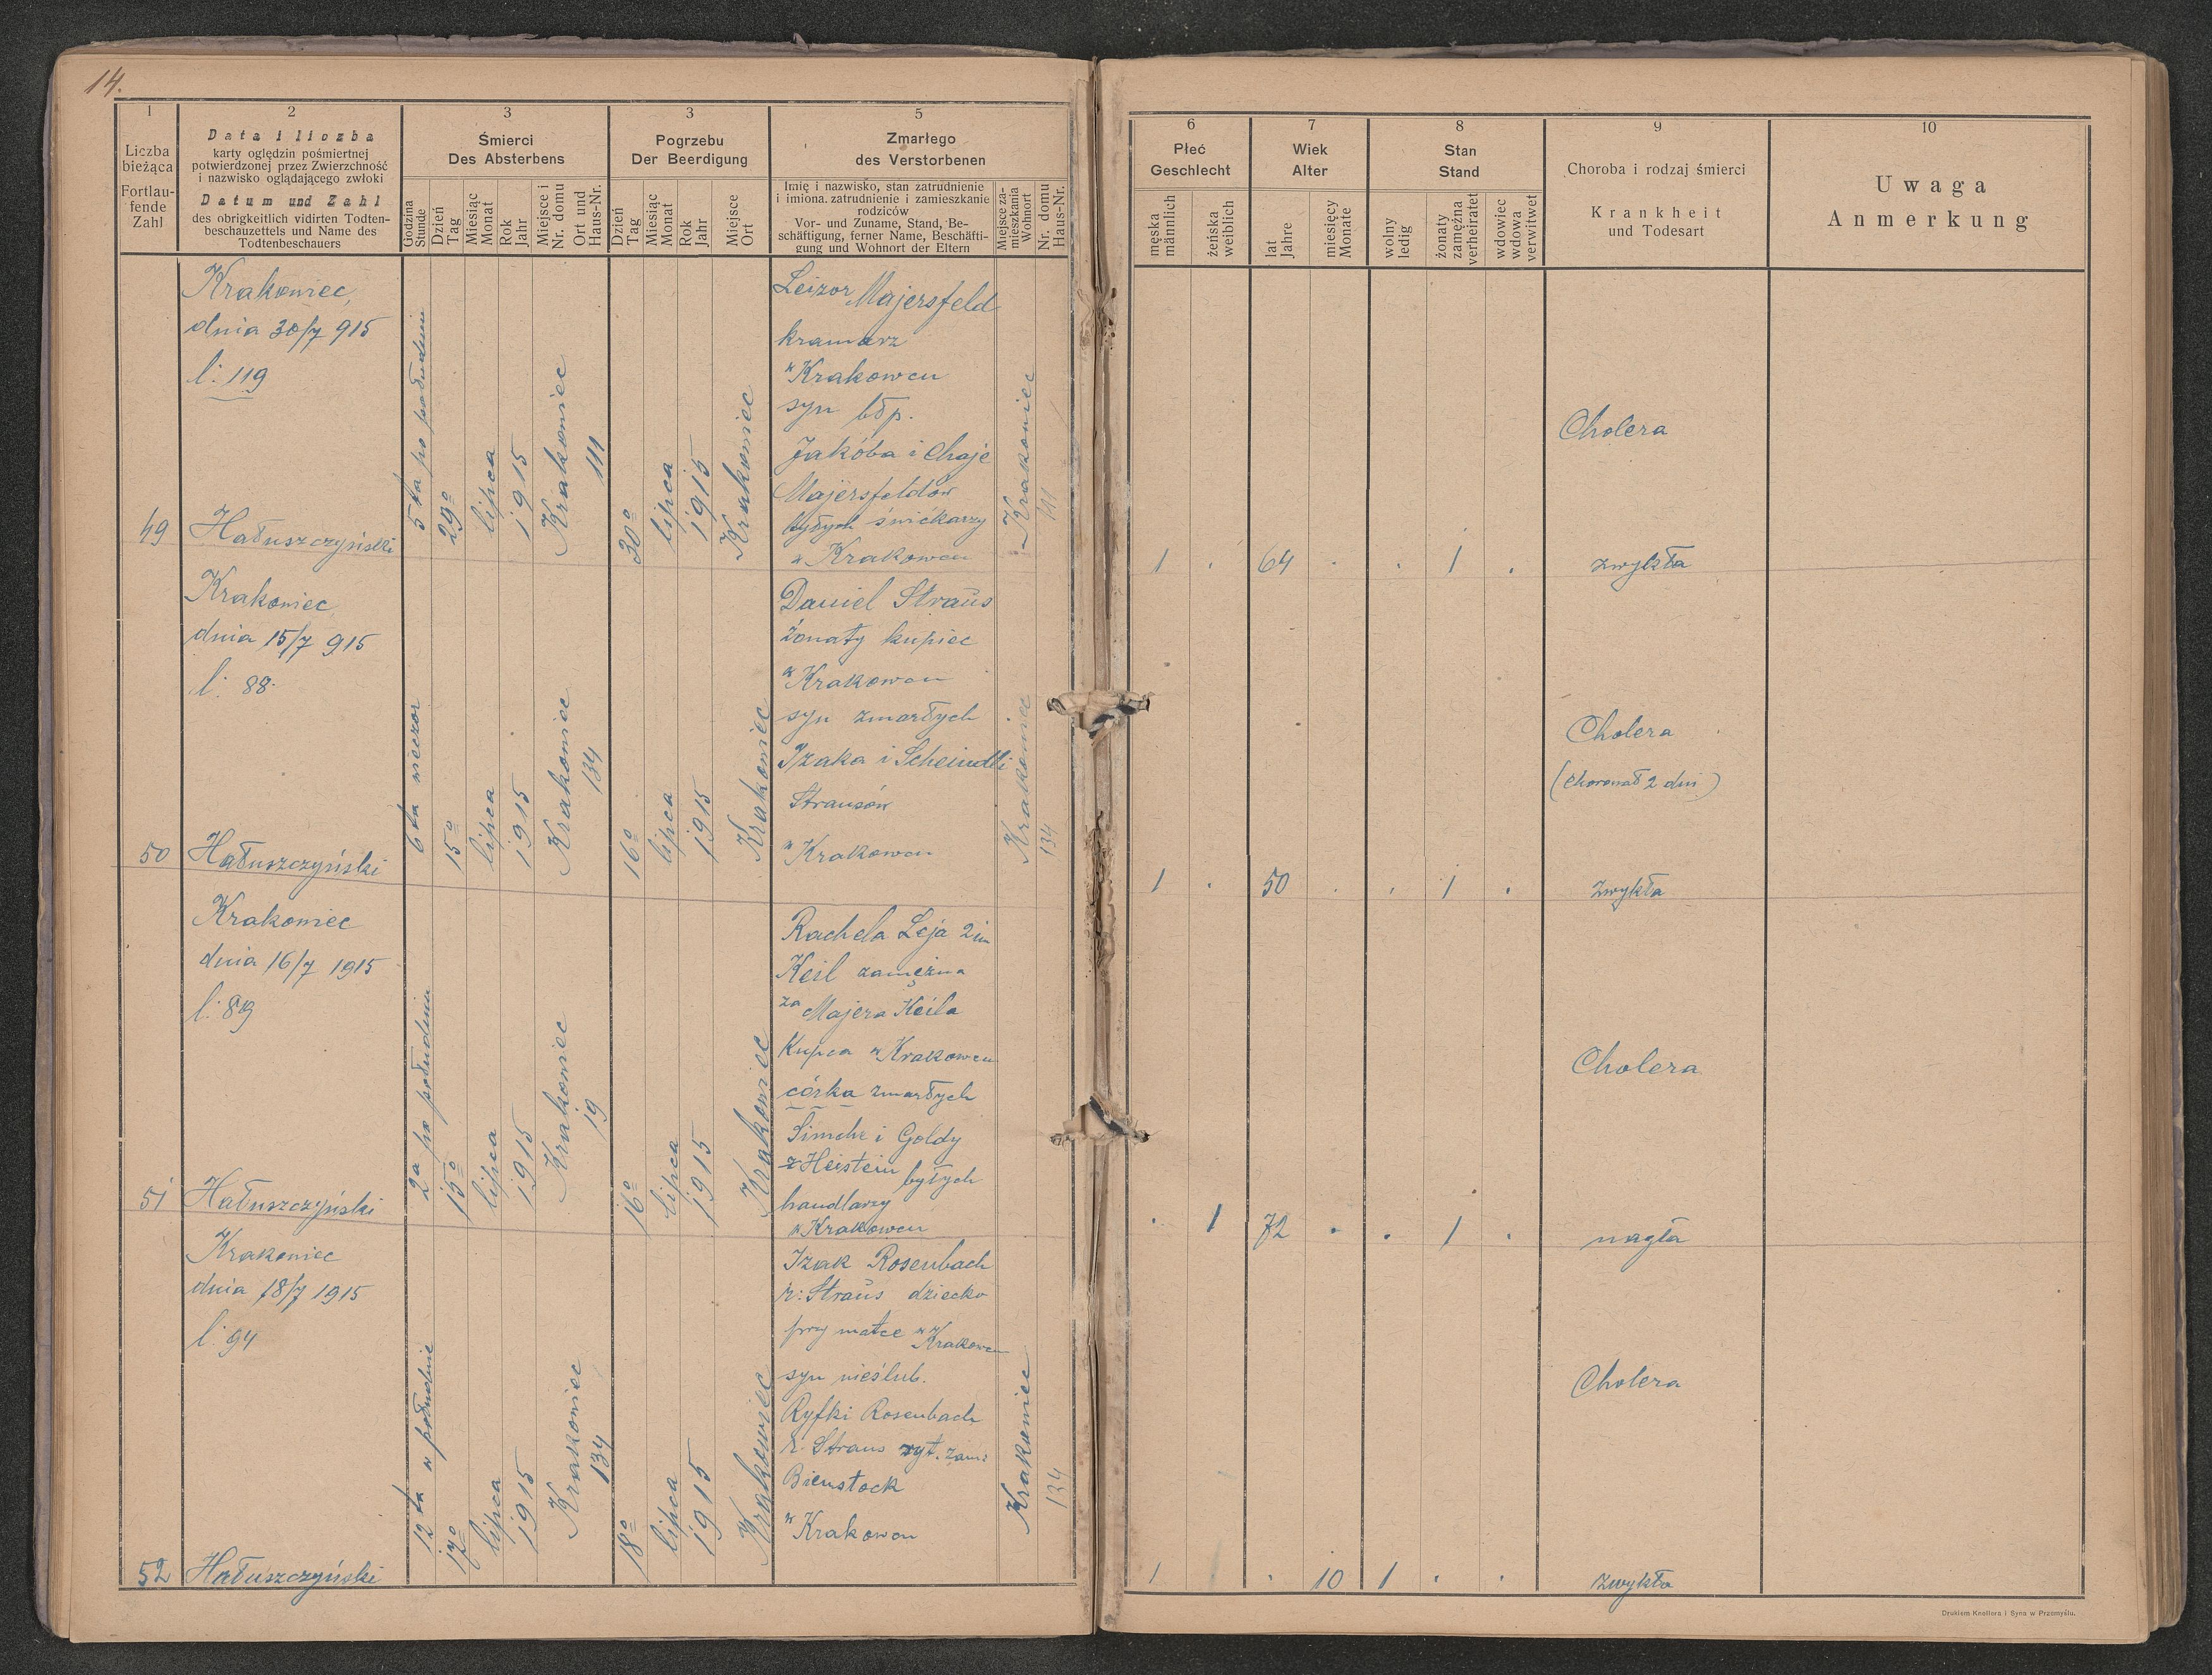 14.
1
2
3
3
5
Liczba
bieżąca
Fortlau-
fende
Zahl
Data i liczba
karty oględzin pośmiertnej
potwierdzonej przez Zwierzchność
i nazwisko oglądającego zwłoki
Datum und Zahl
des obrigkeitlich vidirten Todten-
beschauzettels und Name des
Todtenbeschauers
Śmierci
Des Absterbens
Godzina
Stunde
Dzień
Tag
Miesiąc
Monat
Rok
Jahr
Miejsce i
Nr. domu
Ort und
Haus-Nr.
Pogrzebu
Der Beerdigung
Dzień
Tag
Miesiąc
Monat
Rok
Jahr
Miejsce
Ort
Zmarłego
des Verstorbenen
Imię i nazwisko, stan zatrudnienie
i imiona. zatrudnienie i zamieszkanie
rodziców
Vor- und Zuname, Stand, Be-
schäftigung, ferner Name, Beschäfti-
gung und Wohnort der Eltern
Miejsce za-
mieszkania
Wohnort
Nr. domu
Haus-Nr.
6
7
8
9
10
Płeć
Geschlecht
męska
männlich
żeńska
weiblich
Wiek
Alter
lat
Jahre
miesięcy
Monate
Stan
Stand
wolny
ledig
żonaty
zamężna
verheiratet
wdowiec
wdowa
verwitwet
Choroba i rodzaj śmierci
Krankheit
und Todesart
Uwaga
Anmerkung
49
Krakowiec,
dnia 30/7 915
l: 119
Hałuszczyński
5ta po południu
29º
lipca
1915
Krakowiec
111
30º
lipca
1915
Krakowiec
Leizor Majersfeld
kramarz
w Krakowcu
syn błp.
Jakóba i Chaje
Majersfeldów
byłych świćkarzy
w Krakowcu
Krakowiec
111
1 . 64 . . 1 .
Cholera
zwykła
50
Krakowiec
dnia 15/7 915
l: 88.
Hałuszczyński
6ta wieczor
15º
lipca
1915
Krakowiec
134
16º
lipca
1915
Krakowiec
Daniel Straus
żonaty kupiec
w Krakowcu
syn zmarłych
Izaka i Scheindli
Strausów
w Krakowcu
Krakowiec
134
1 . 50 . . 1 .
Cholera
(chorował 2 dni)
zwykła
51
Krakowiec
dnia 16/7 1915
l: 89
Hałuszczyński
2a po południu
15º
lipca
1915
Krakowiec
19
16º
lipca
1915
Krakowiec
Rachela Leja 2im
Keil zamężna
za Majera Keila
Kupca w Krakowcu
córka zmarłych
Simche i Goldy
z Heistein byłych
handlarzy
w Krakowcu
. 1 72 . . 1 .
Cholera
nagła
52
Krakowiec
dnia 18/7 1915
l: 94
Hałuszczyński
12ta w południe
17º
lipca
1915
Krakowiec
134
18º
lipca
1915
Krakowiec
Izak Rosenbach
r: Straus dziecko
przy matce w Krakowcu
syn nieślub.
Ryfki Rosenbach
r: Straus ryt. zam:
Bienstock
w Krakowcu
Krakowiec
134
1 . 10 1 . .
Cholera
zwykła
Drukiem Knollera i Syna w Przemyślu.